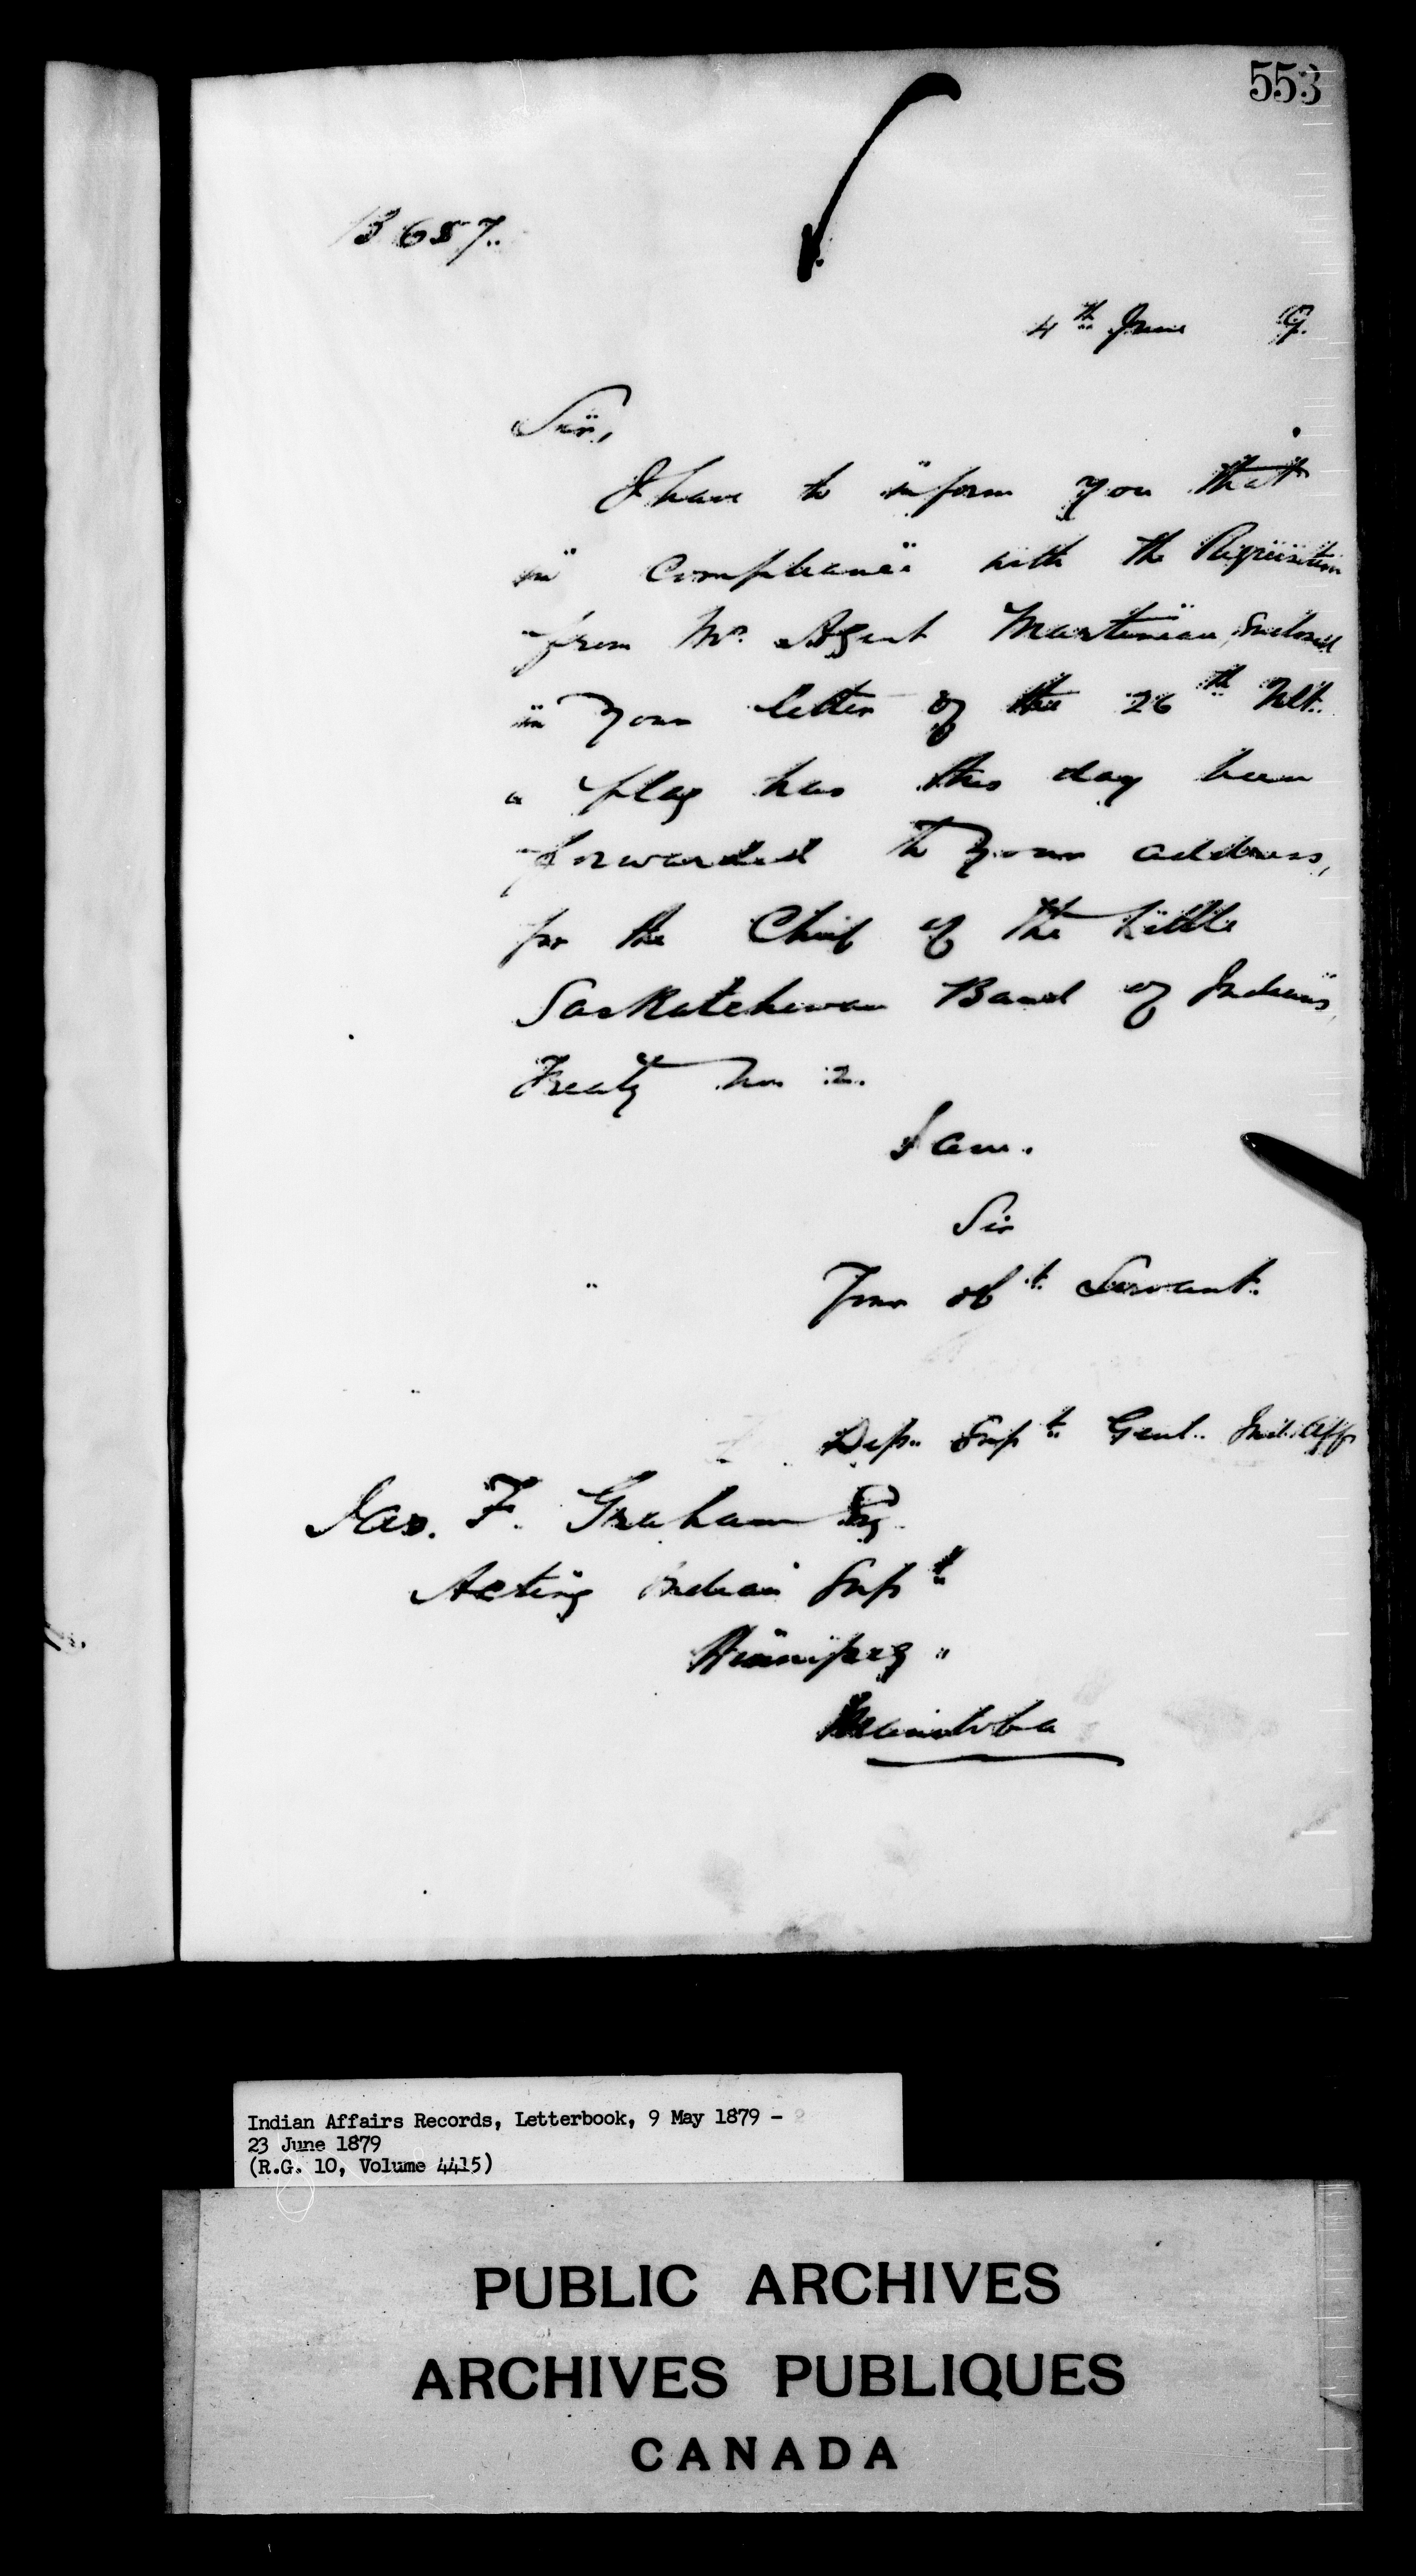 553
13657.
4th June 9.
Sir,
I have to inform you that
in compliance with the Requisition
from Mr. Agent Martineau, Enclosed
in your letter of the 26th Ult.
a flag has this day been
forwarded to your address,
for the Chief of the Little
Saskatchewan Band of Indians,
Treaty No. 2.
I am.
Sir
Your obt. Servant.
Dep. Supt. Genl. Ind. Affrs
Jas. F. Graham Esq.
Acting Indian Supt.
Winnipeg
Manitoba
Indian Affairs Records, Letterbook, 9 May 1879 -
23 June 1879
(R.G. 10, Volume 4415)
PUBLIC ARCHIVES
ARCHIVES PUBLIQUES
CANADA